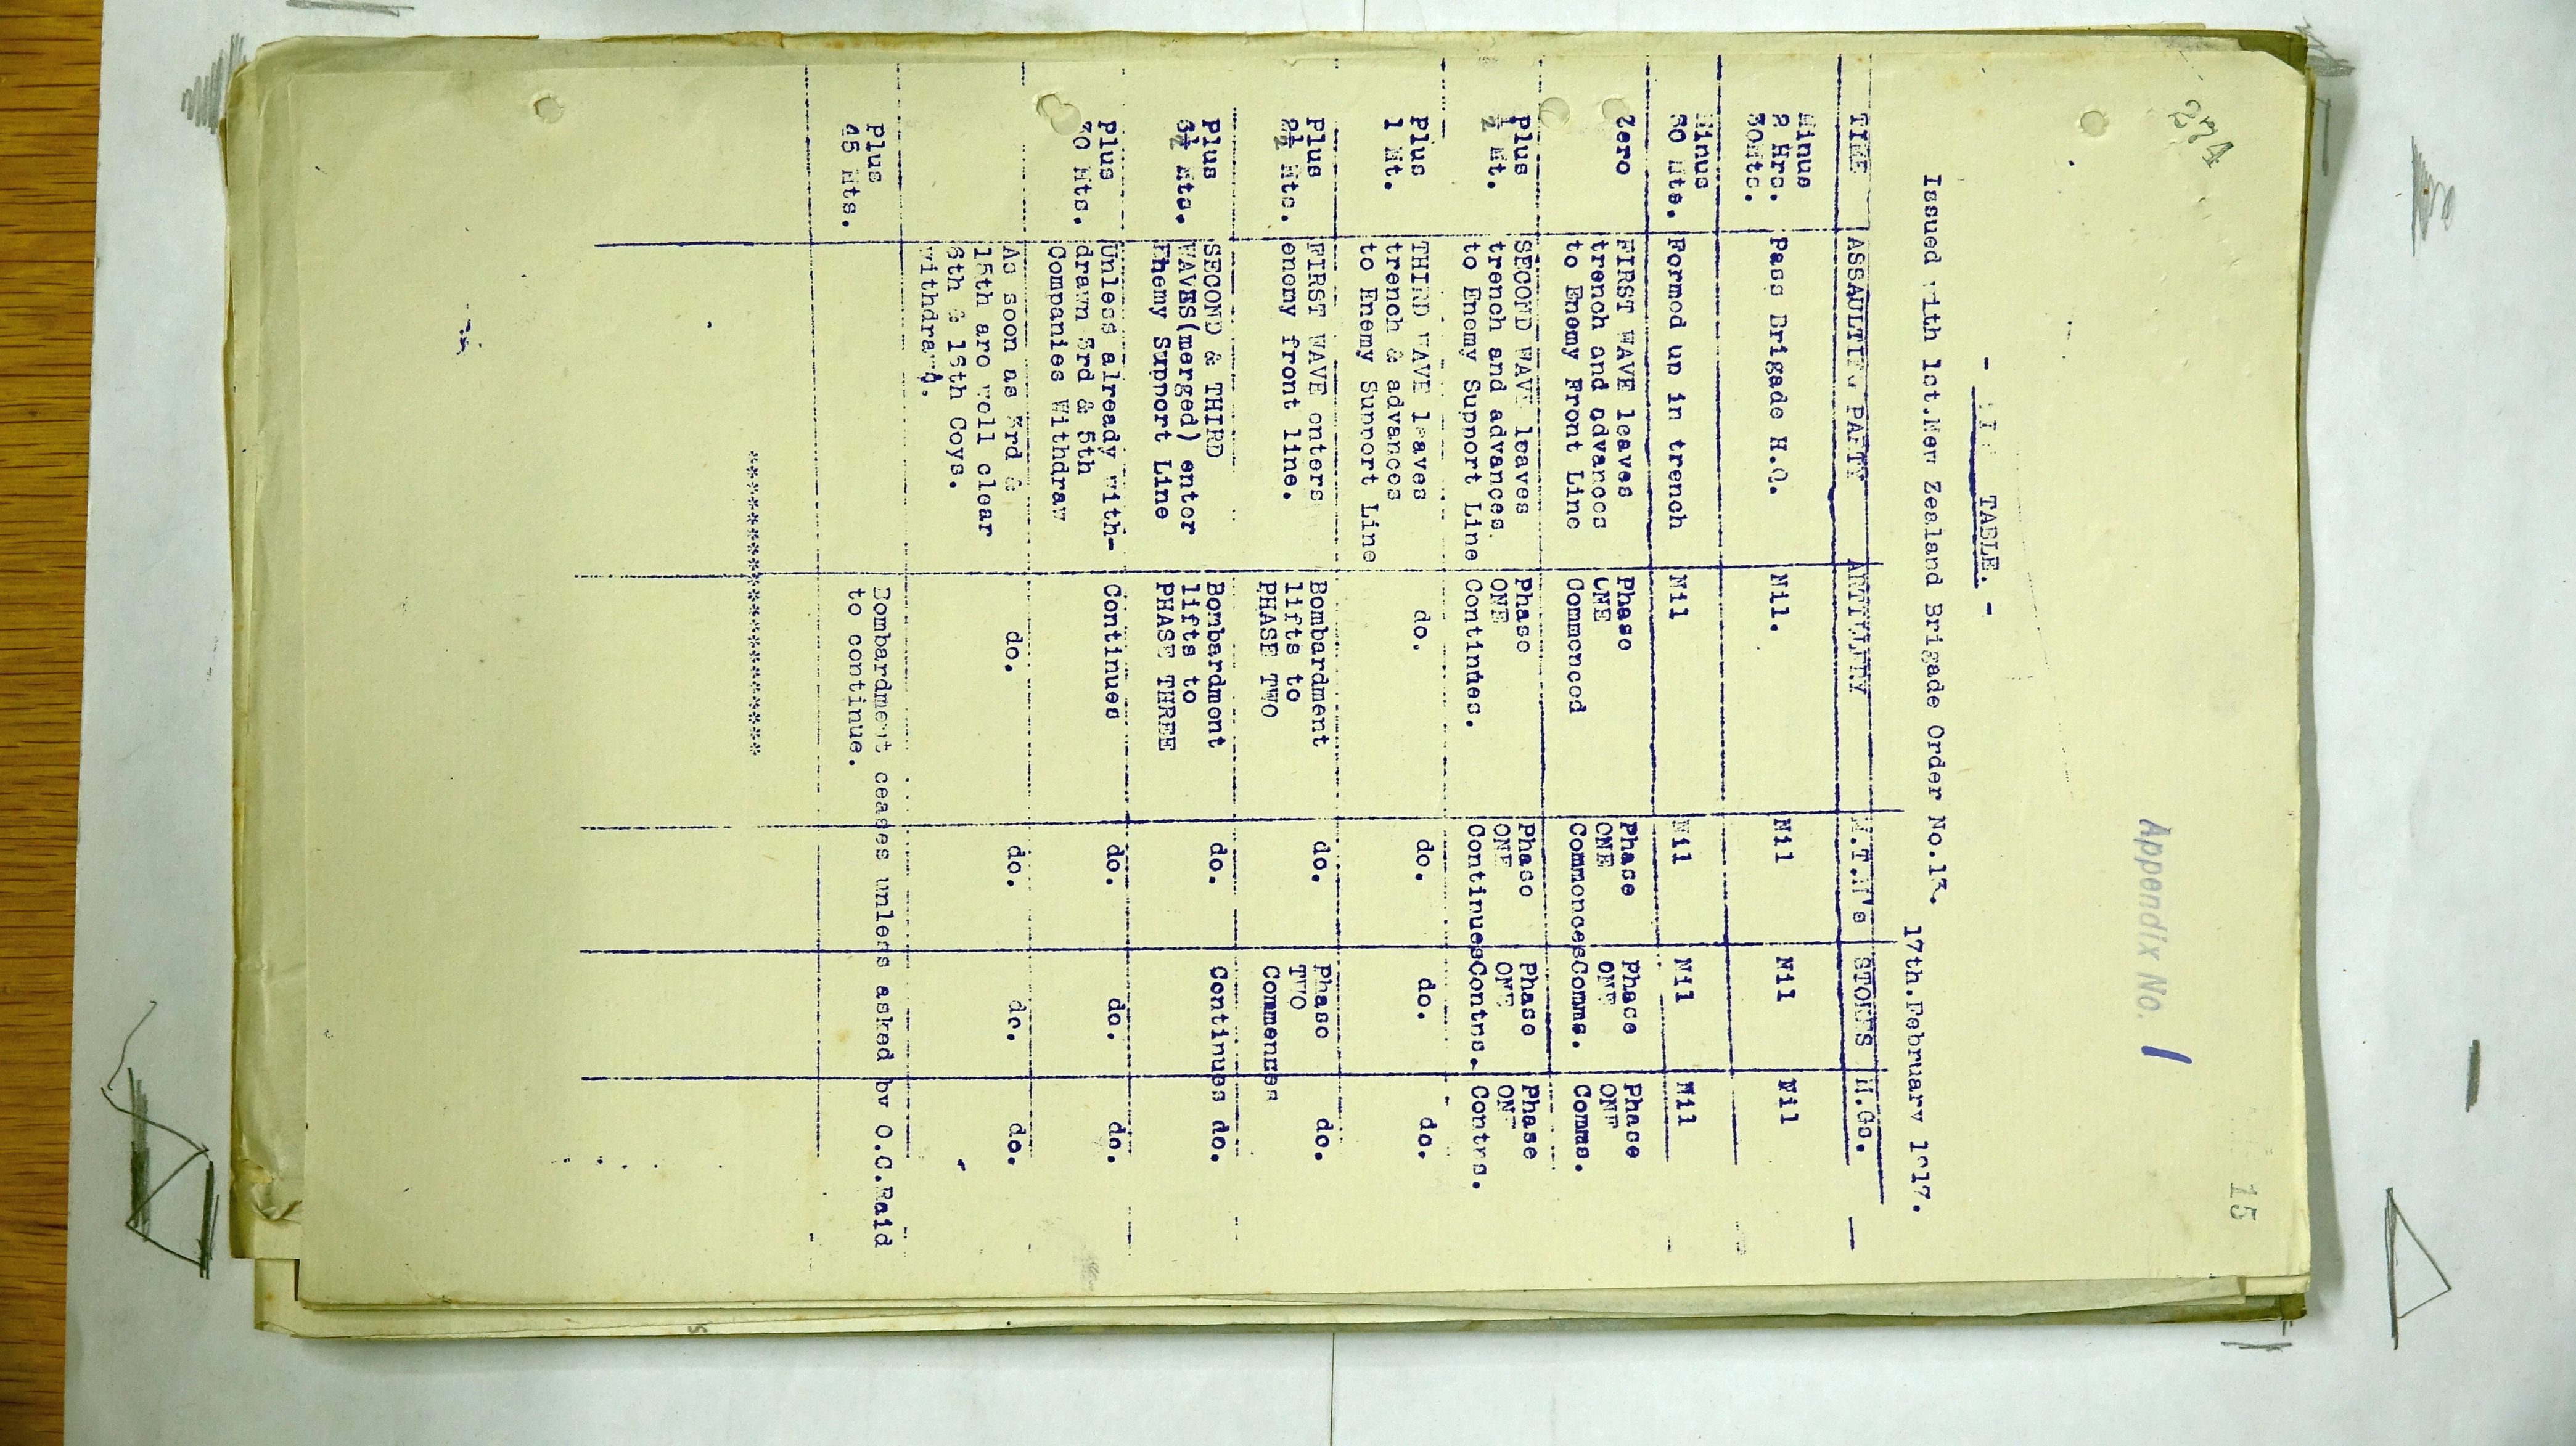 274
15
Appendix No. 1
TABLE. -
Issued with 1st.New Zealand Brigade Order No.13. 17th.February 1917.
TIME ASSAULTING PARTY ARTILLERY M.T.M's STOKES M.Gs.
Minus
2 Hrs. Pass Brigade H.Q. Nil. Nil Nil Nil
30Mts.
Minus
30 Mts. Formed up in trench Nil Nil Nil Nil
Zero FIRST WAVE leaves Phase Phase Phase Phase
trench and advances ONE ONE ONE ONE
to Enemy Front Line Commenced Commences Comms. Comms.
Plus SECOND WAVE leaves Phase Phase Phase Phase
½ Mt. trench and advances ONE ONE ONE ONE
to Enemy Support Line Continues. Continues Contns. Contns.
Plus THIRD WAVE leaves do. do. do. do.
1 Mt. trench & advances
to Enemy Support Line
Plus FIRST WAVE enters Bombardment do. Phase do.
2½ Mts. enemy front line. lifts to TWO
PHASE TWO Commences
Plus SECOND & THIRD Bombardment do. Continues do.
3½ Mts. WAVES(merged) enter lifts to
Enemy Support Line PHASE THREE
Plus Unless already with- Continues do. do. do.
30 Mts. drawn 3rd & 5th
Companies Withdraw
As soon as 3rd & do. do. do. do.
15th are well clear
6th & 16th Coys.
withdraw.
Plus Bombardment ceases unless asked by O.C.Raid
45 Mts. to continue.
***************************